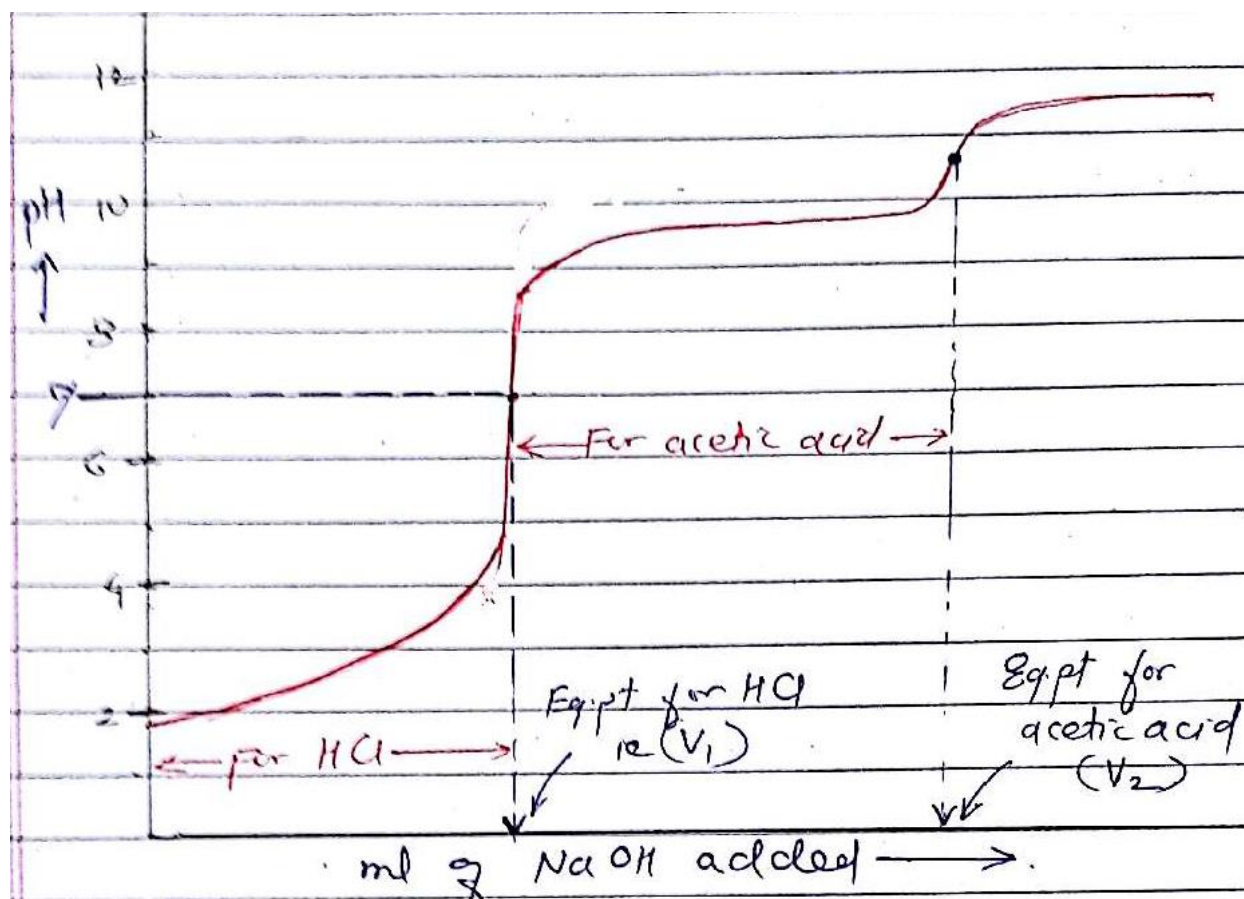 12
10
pH
↑
8
7
6
4
2
←For acetic acid→
← for HCl →
Eq.pt for HCl
ie (V₁)
Eq.pt for
acetic acid
(V₂)
ml of NaOH added →.